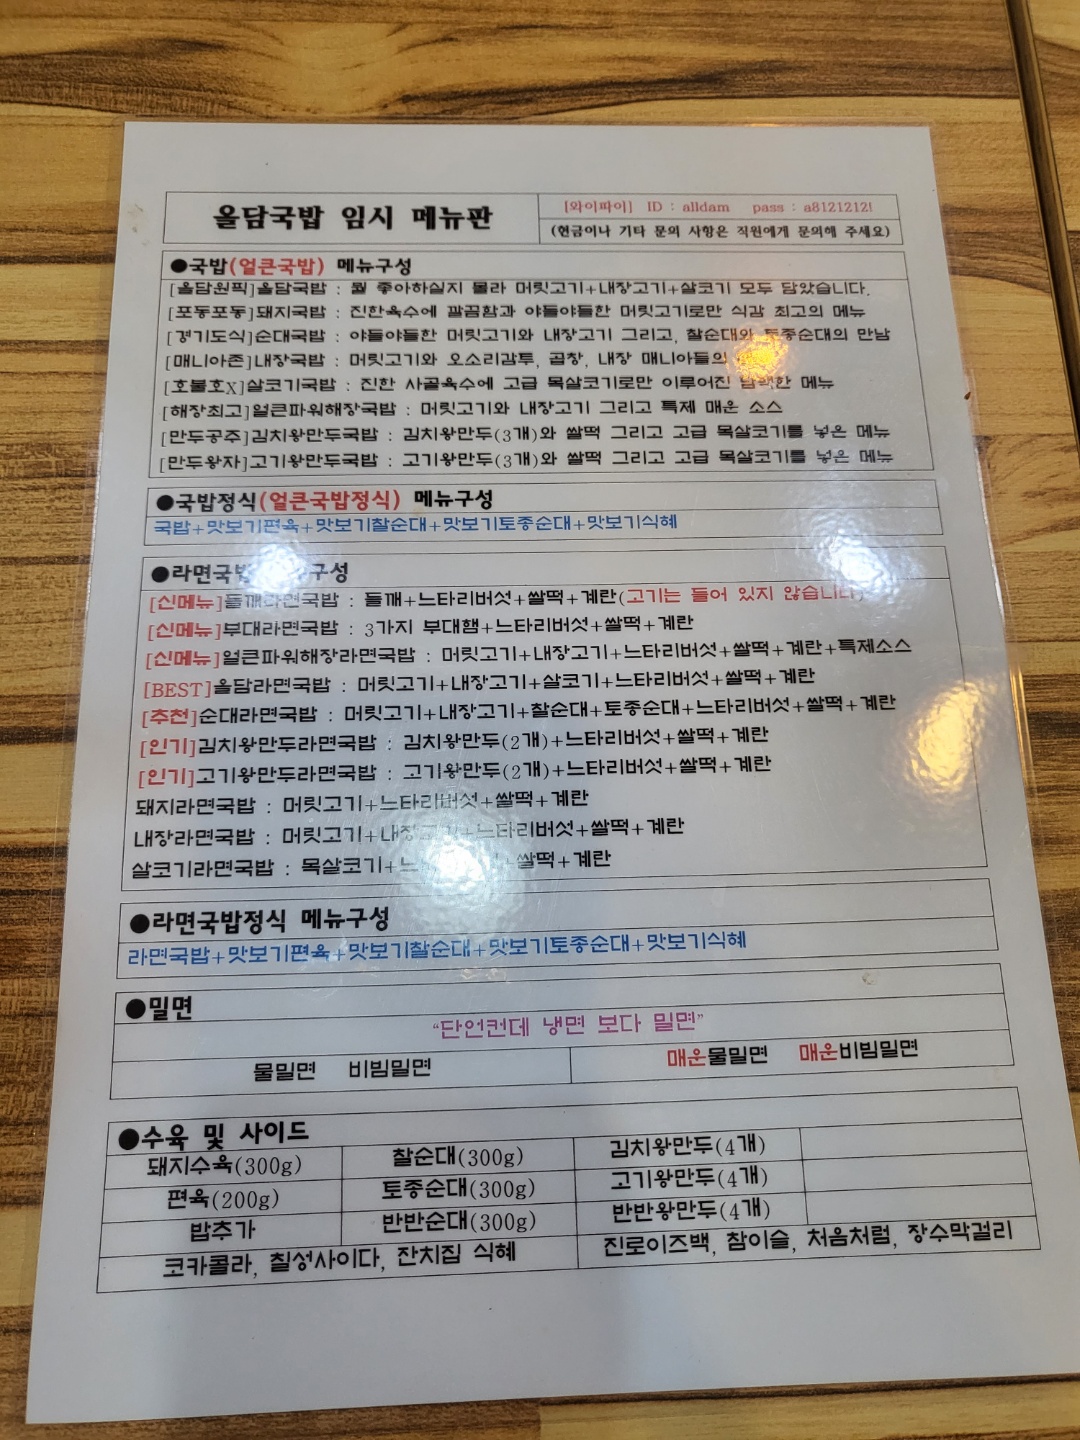 올담국밥 임시 메뉴판
[와이파이] ID : alldam pass : a8121212!
(현금이나 기타 문의 사항은 직원에게 문의해 주세요)
●국밥(얼큰국밥) 메뉴구성
[올담원픽]올담국밥 : 뭘 좋아하실지 몰라 머릿고기+내장고기+살코기 모두 담았습니다.
[포동포동]돼지국밥 : 진한육수에 깔끔함과 야들야들한 머릿고기로만 식감 최고의 메뉴
[경기도식]순대국밥 : 야들야들한 머릿고기와 내장고기 그리고, 찰순대와 토종순대의 만남
[매니아존]내장국밥 : 머릿고기와 오소리감투, 곱창, 내장 매니아들의
[호불호X]살코기국밥 : 진한 사골육수에 고급 목살코기로만 이루어진 담백한 메뉴
[해장최고]얼큰파워해장국밥 : 머릿고기와 내장고기 그리고 특제 매운 소스
[만두공주]김치왕만두국밥 : 김치왕만두(3개)와 쌀떡 그리고 고급 목살코기를 넣은 메뉴
[만두왕자]고기왕만두국밥 : 고기왕만두(3개)와 쌀떡 그리고 고급 목살코기를 넣은 메뉴
●국밥정식(얼큰국밥정식) 메뉴구성
국밥+맛보기편육+맛보기찰순대+맛보기토종순대+맛보기식혜
●라면국밥 메뉴구성
[신메뉴]들깨라면국밥 : 들깨+느타리버섯+쌀떡+계란(고기는 들어 있지 않습니다)
[신메뉴]부대라면국밥 : 3가지 부대햄+느타리버섯+쌀떡+계란
[신메뉴]얼큰파워해장라면국밥 : 머릿고기+내장고기+느타리버섯+쌀떡+계란+특제소스
[BEST]올담라면국밥 : 머릿고기+내장고기+살코기+느타리버섯+쌀떡+계란
[추천]순대라면국밥 : 머릿고기+내장고기+찰순대+토종순대+느타리버섯+쌀떡+계란
[인기]김치왕만두라면국밥 : 김치왕만두(2개)+느타리버섯+쌀떡+계란
[인기]고기왕만두라면국밥 : 고기왕만두(2개)+느타리버섯+쌀떡+계란
돼지라면국밥 : 머릿고기+느타리버섯+쌀떡+계란
내장라면국밥 : 머릿고기+내장고기+느타리버섯+쌀떡+계란
살코기라면국밥 : 목살코기+느타리버섯+쌀떡+계란
●라면국밥정식 메뉴구성
라면국밥+맛보기편육+맛보기찰순대+맛보기토종순대+맛보기식혜
●밀면
"단언컨데 냉면 보다 밀면"
물밀면 비빔밀면 매운물밀면 매운비빔밀면
●수육 및 사이드
돼지수육(300g) 찰순대(300g) 김치왕만두(4개)
편육(200g) 토종순대(300g) 고기왕만두(4개)
밥추가 반반순대(300g) 반반왕만두(4개)
코카콜라, 칠성사이다, 잔치집 식혜 진로이즈백, 참이슬, 처음처럼, 장수막걸리